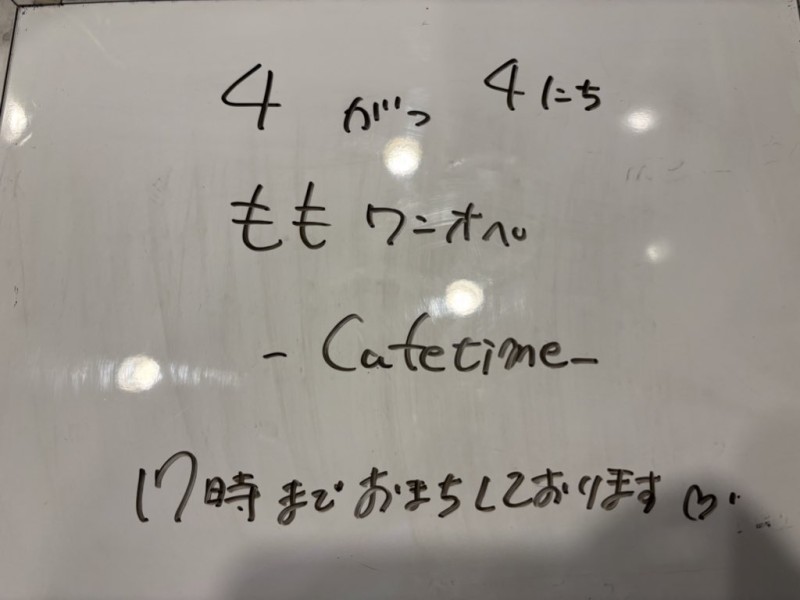 4がつ 4にち
もも ワニオペ
- Cafetime -
17時までおまちしております♡